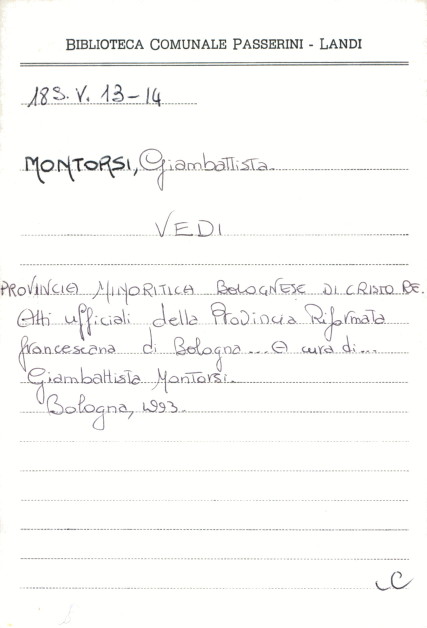 BIBLIOTECA COMUNALE PASSERINI - LANDI
18S. V. 13-14
MONTORSI, Giambattista.
VEDI
PROVINCIA MINORITICA BOLOGNESE DI CRISTO RE.
Atti ufficiali della Provincia Riformata
francescana di Bologna... A cura di...
Giambattista Montorsi.
Bologna, 1993.